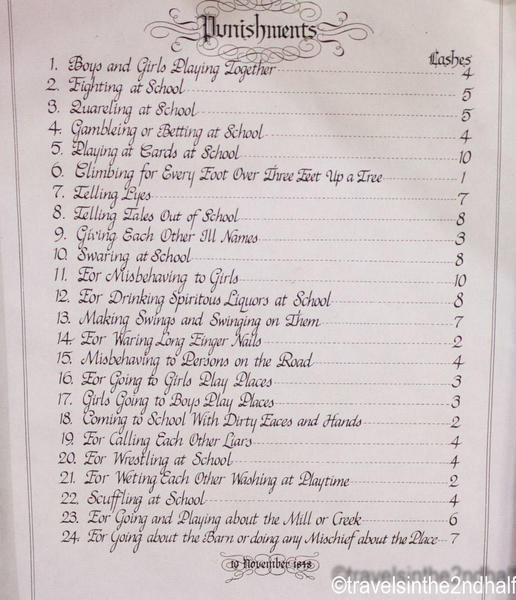 Punishments
Lashes
1. Boys and Girls Playing Together 4
2. Fighting at School 5
3. Quareling at School 5
4. Gambleing or Betting at School 4
5. Playing at Cards at School 10
6. Climbing for Every Foot Over Three Feet Up a Tree 1
7. Telling Lyes 7
8. Telling Tales Out of School 8
9. Giving Each Other Ill Names 3
10. Swaring at School 8
11. For Misbehaving to Girls 10
12. For Drinking Spiritous Liquors at School 8
13. Making Swings and Swinging on Them 7
14. For Waring Long Finger Nails 2
15. Misbehaving to Persons on the Road 4
16. For Going to Girls Play Places 3
17. Girls Going to Boys Play Places 3
18. Coming to School With Dirty Faces and Hands 2
19. For Calling Each Other Liars 4
20. For Wrestling at School 4
21. For Weting Each Other Washing at Playtime 2
22. Scuffling at School 4
23. For Going and Playing about the Mill or Creek 6
24. For Going about the Barn or doing any Mischief about the Place 7
10 November 1848
©travelsinthe2ndhalf